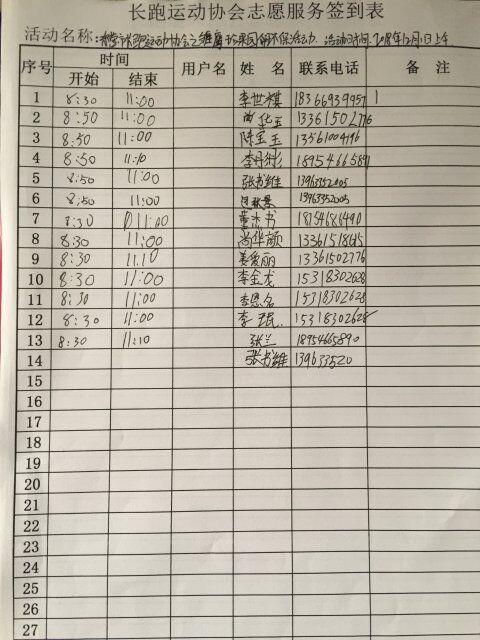 长跑运动协会志愿服务签到表
活动名称: 长跑运动协会 环保活动. 活动时间: 2018年12月1日上午
序号 时间 用户名 姓名 联系电话 备注
开始 结束
1 8:30 11:00 李世祺 18366939957
2 8:50 11:00 尚华玉 13361502776
3 8:50 11:00 陈宝玉 13561004196
4 8:50 11:10 李丹彬 18954665891
5 8:50 11:00 张书维 13963352005
6 8:50 11:00 13963352005
7 8:30 11:00 董杰书 18754681490
8 8:30 11:00 尚华颜 13361518645
9 8:30 11.10 姜爱丽 13361502776
10 8:30 11:00 李金龙 15318302628
11 8:30 11:00 李恩名 15318302628
12 8:30 11:00 李琨 15318302628
13 8:30 11:10 张兰 18954665890
14 张书维 139633520
15
16
17
18
19
20
21
22
23
24
25
26
27